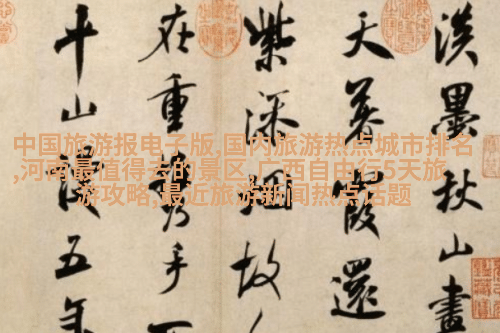 淡墨秋山畫
天暮霞還
紫添煙故
在重攜手不
平山謾五年
中国旅游报电子版,国内旅游热点城市排名
,河南最值得去的景区,广西自由行5天旅
游攻略,最近旅游新闻热点话题